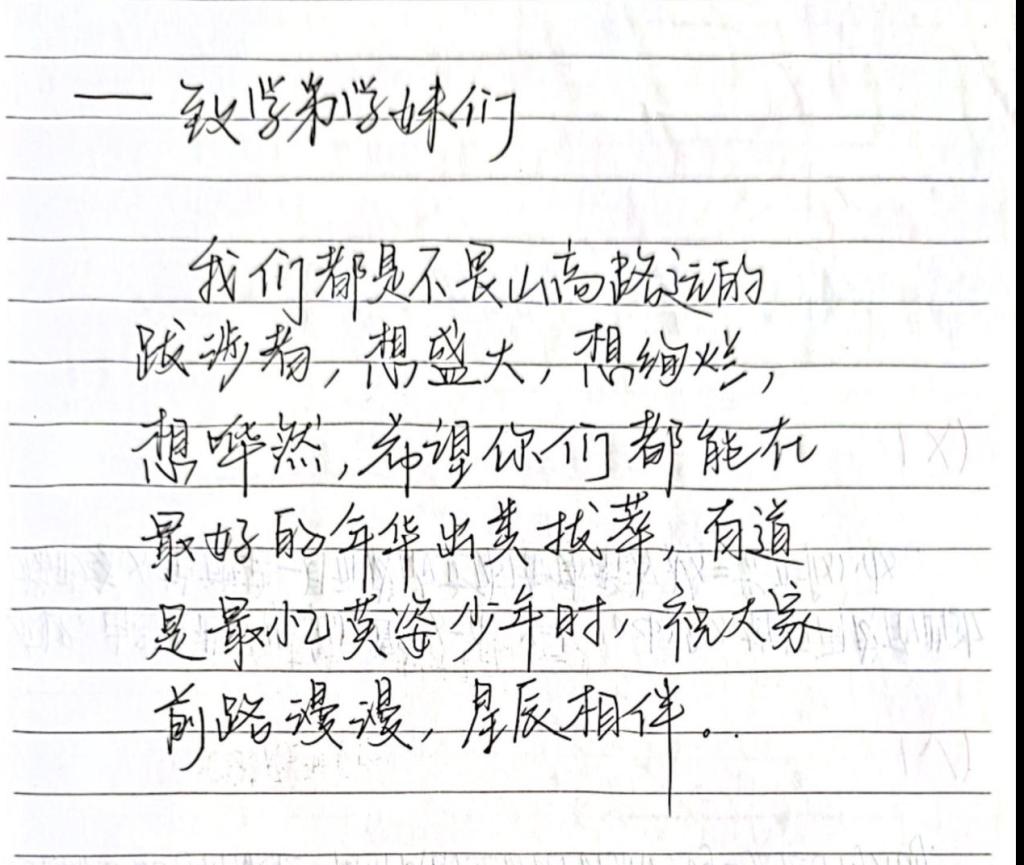 —— 致学弟学妹们
我们都是不畏山高路远的
跋涉者，想盛大，想绚烂，
想哗然，希望你们都能在
最好的年华出类拔萃，有道
是最忆英姿少年时，祝大家
前路漫漫，星辰相伴。